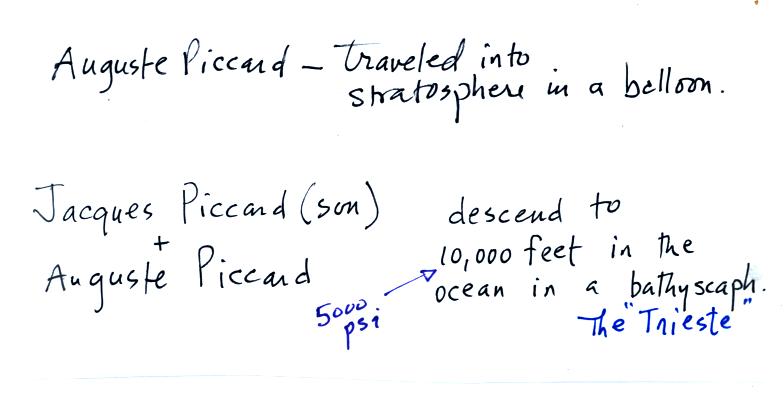 Auguste Piccard – traveled into
stratosphere in a balloon.
Jacques Piccard (son)
+
Auguste Piccard
descend to
10,000 feet in the
ocean in a bathyscaph.
5000
psi
The "Trieste"